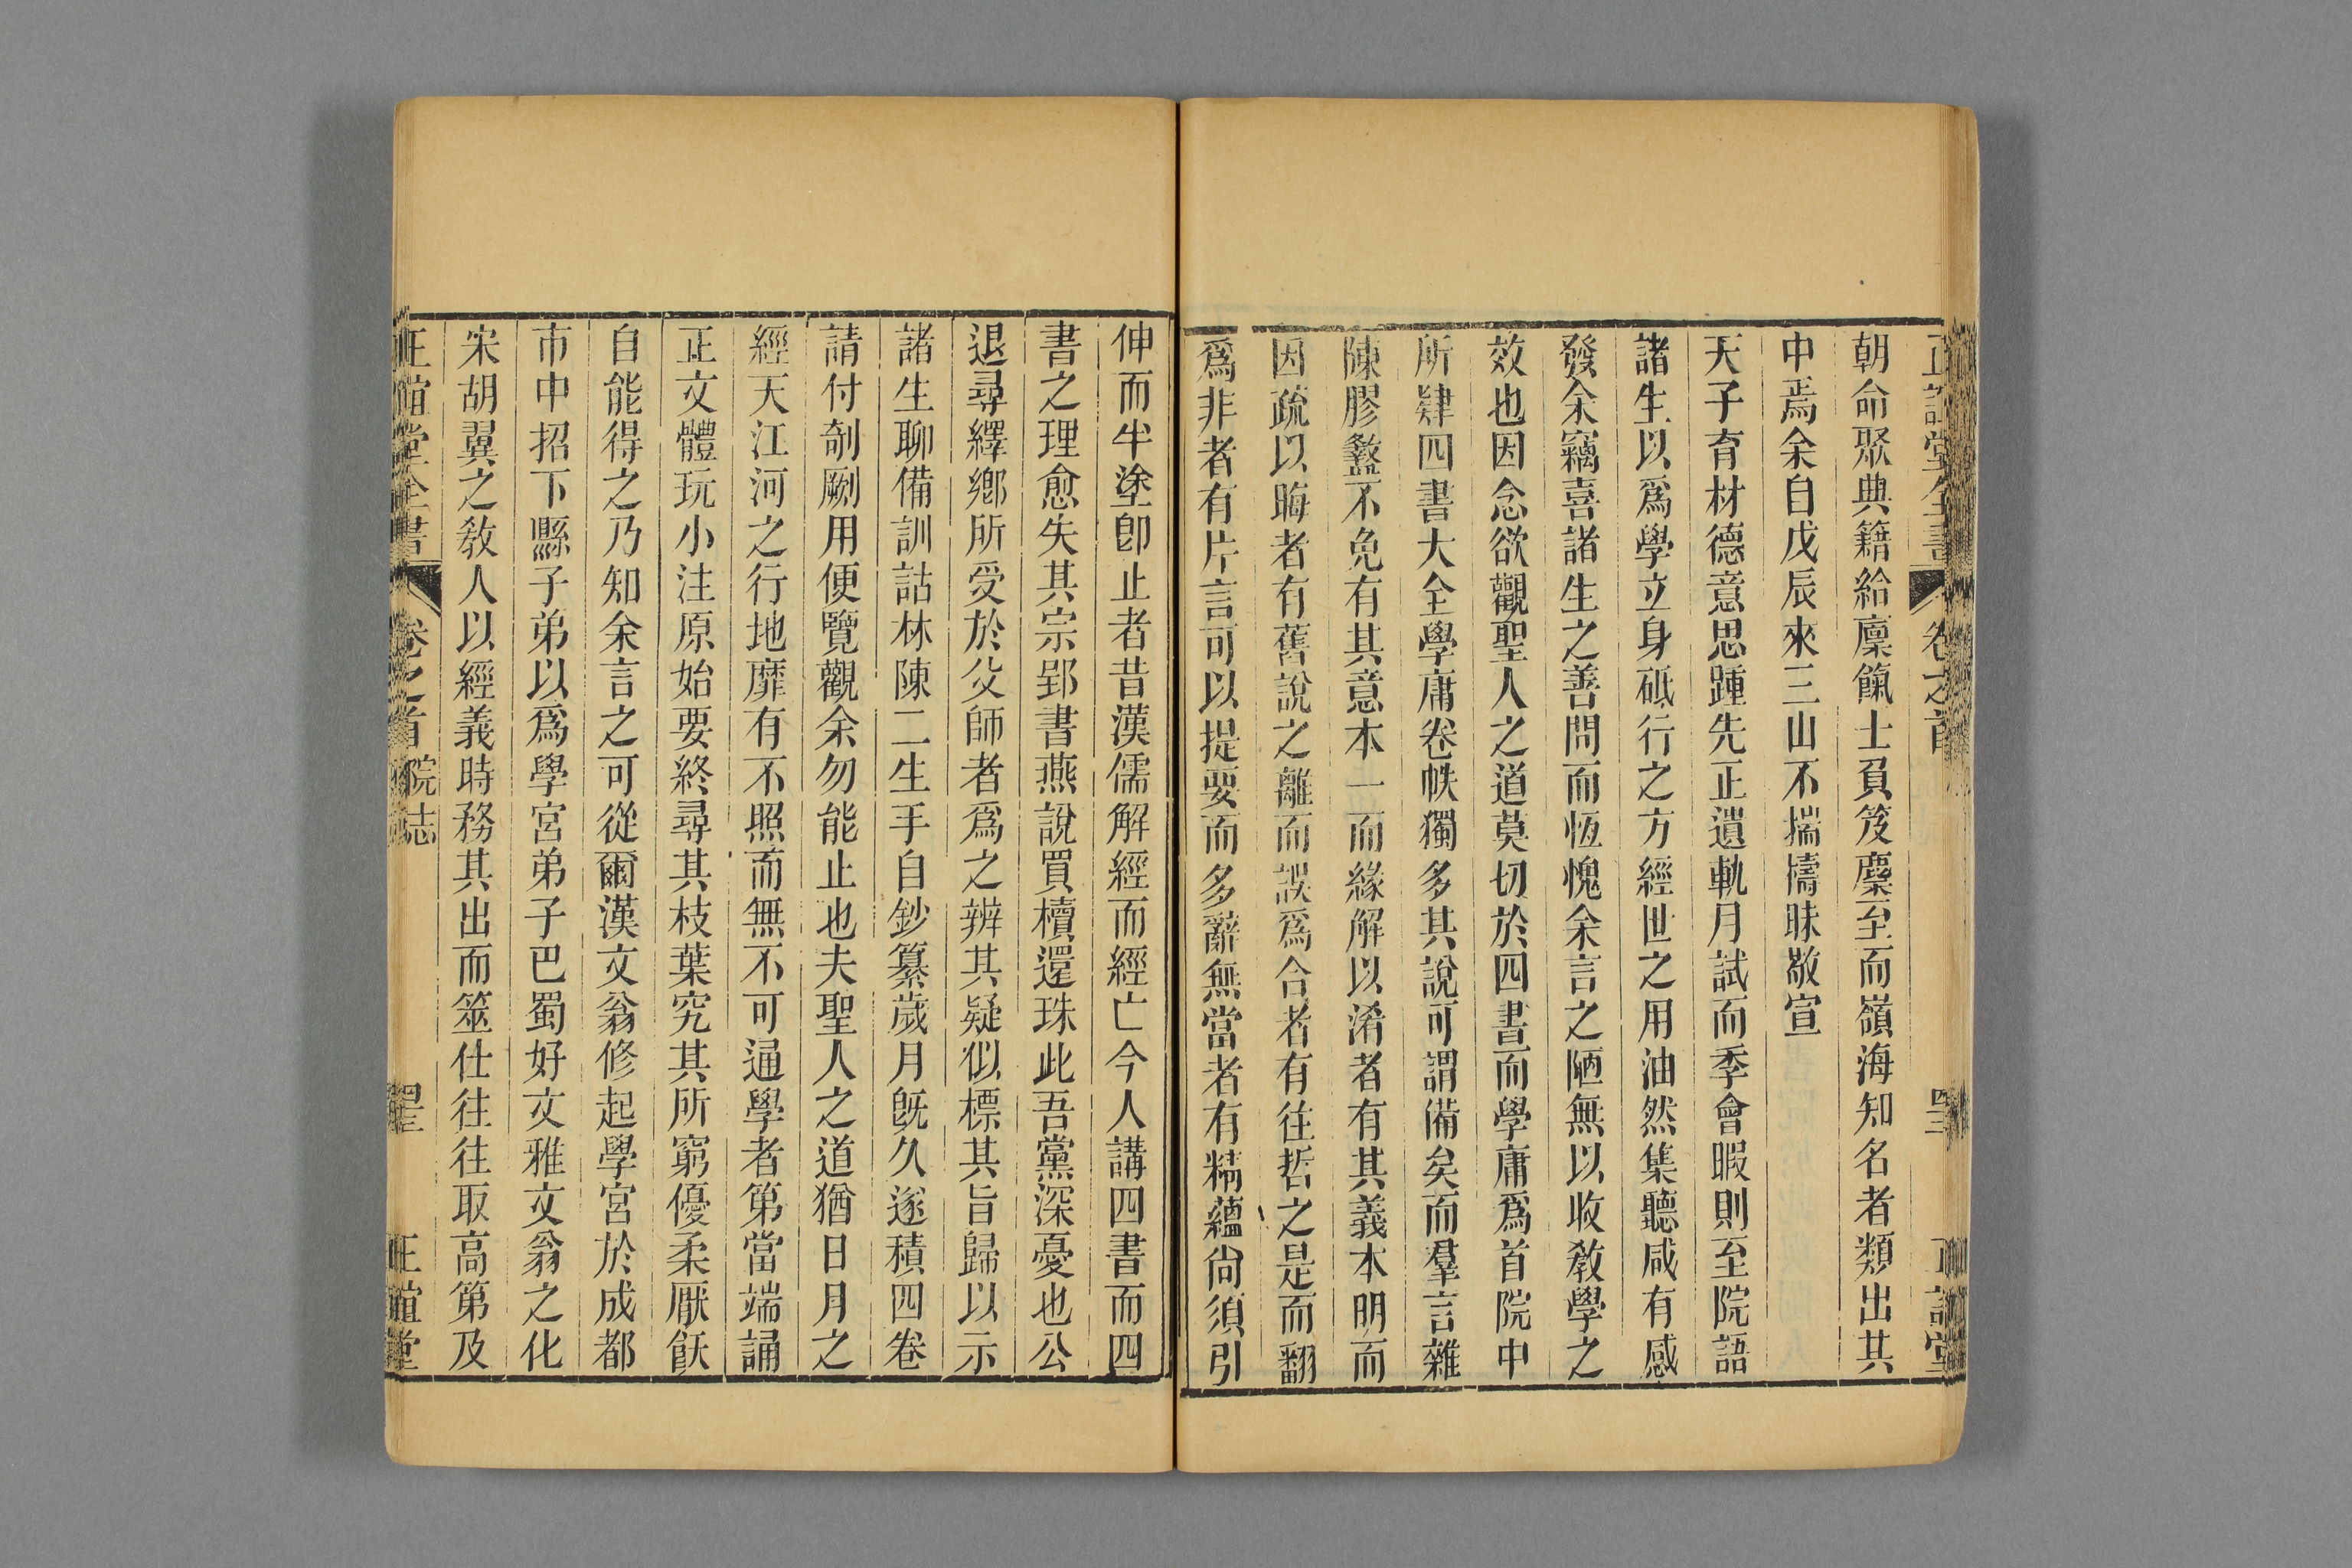 正誼堂全書 卷之首
朝命聚典籍給廩餼士負笈麇至而嶺海知名者類出其
中焉余自戊辰來三山不揣檮昧敬宣
天子育材德意思踵先正遺軌月試而季會暇則至院語
諸生以爲學立身砥行之方經世之用油然集聽咸有感
發余竊喜諸生之善問而恆愧余言之陋無以收敎學之
效也因念欲觀聖人之道莫切於四書而學庸爲首院中
所肄四書大全學庸卷帙獨多其說可謂備矣而羣言雜
陳膠盭不免有其意本一而緣解以淆者有其義本明而
因疏以晦者有舊說之離而誤爲合者有往哲之是而翻
爲非者有片言可以提要而多辭無當者有精蘊尙須引
伸而半塗卽止者昔漢儒解經而經亡今人講四書而四
書之理愈失其宗郢書燕說買櫝還珠此吾黨深憂也公
退尋繹鄉所受於父師者爲之辨其疑似標其旨歸以示
諸生聊備訓詁林陳二生手自鈔纂歲月旣久遂積四卷
請付剞劂用便覽觀余勿能止也夫聖人之道猶日月之
經天江河之行地靡有不照而無不可通學者第當端誦
正文體玩小注原始要終尋其枝葉究其所窮優柔厭飫
自能得之乃知余言之可從爾漢文翁修起學宮於成都
市中招下縣子弟以爲學宮弟子巴蜀好文雅文翁之化
宋胡翼之敎人以經義時務其出而筮仕往往取高第及
正誼堂全書 卷之首 院誌 正誼堂